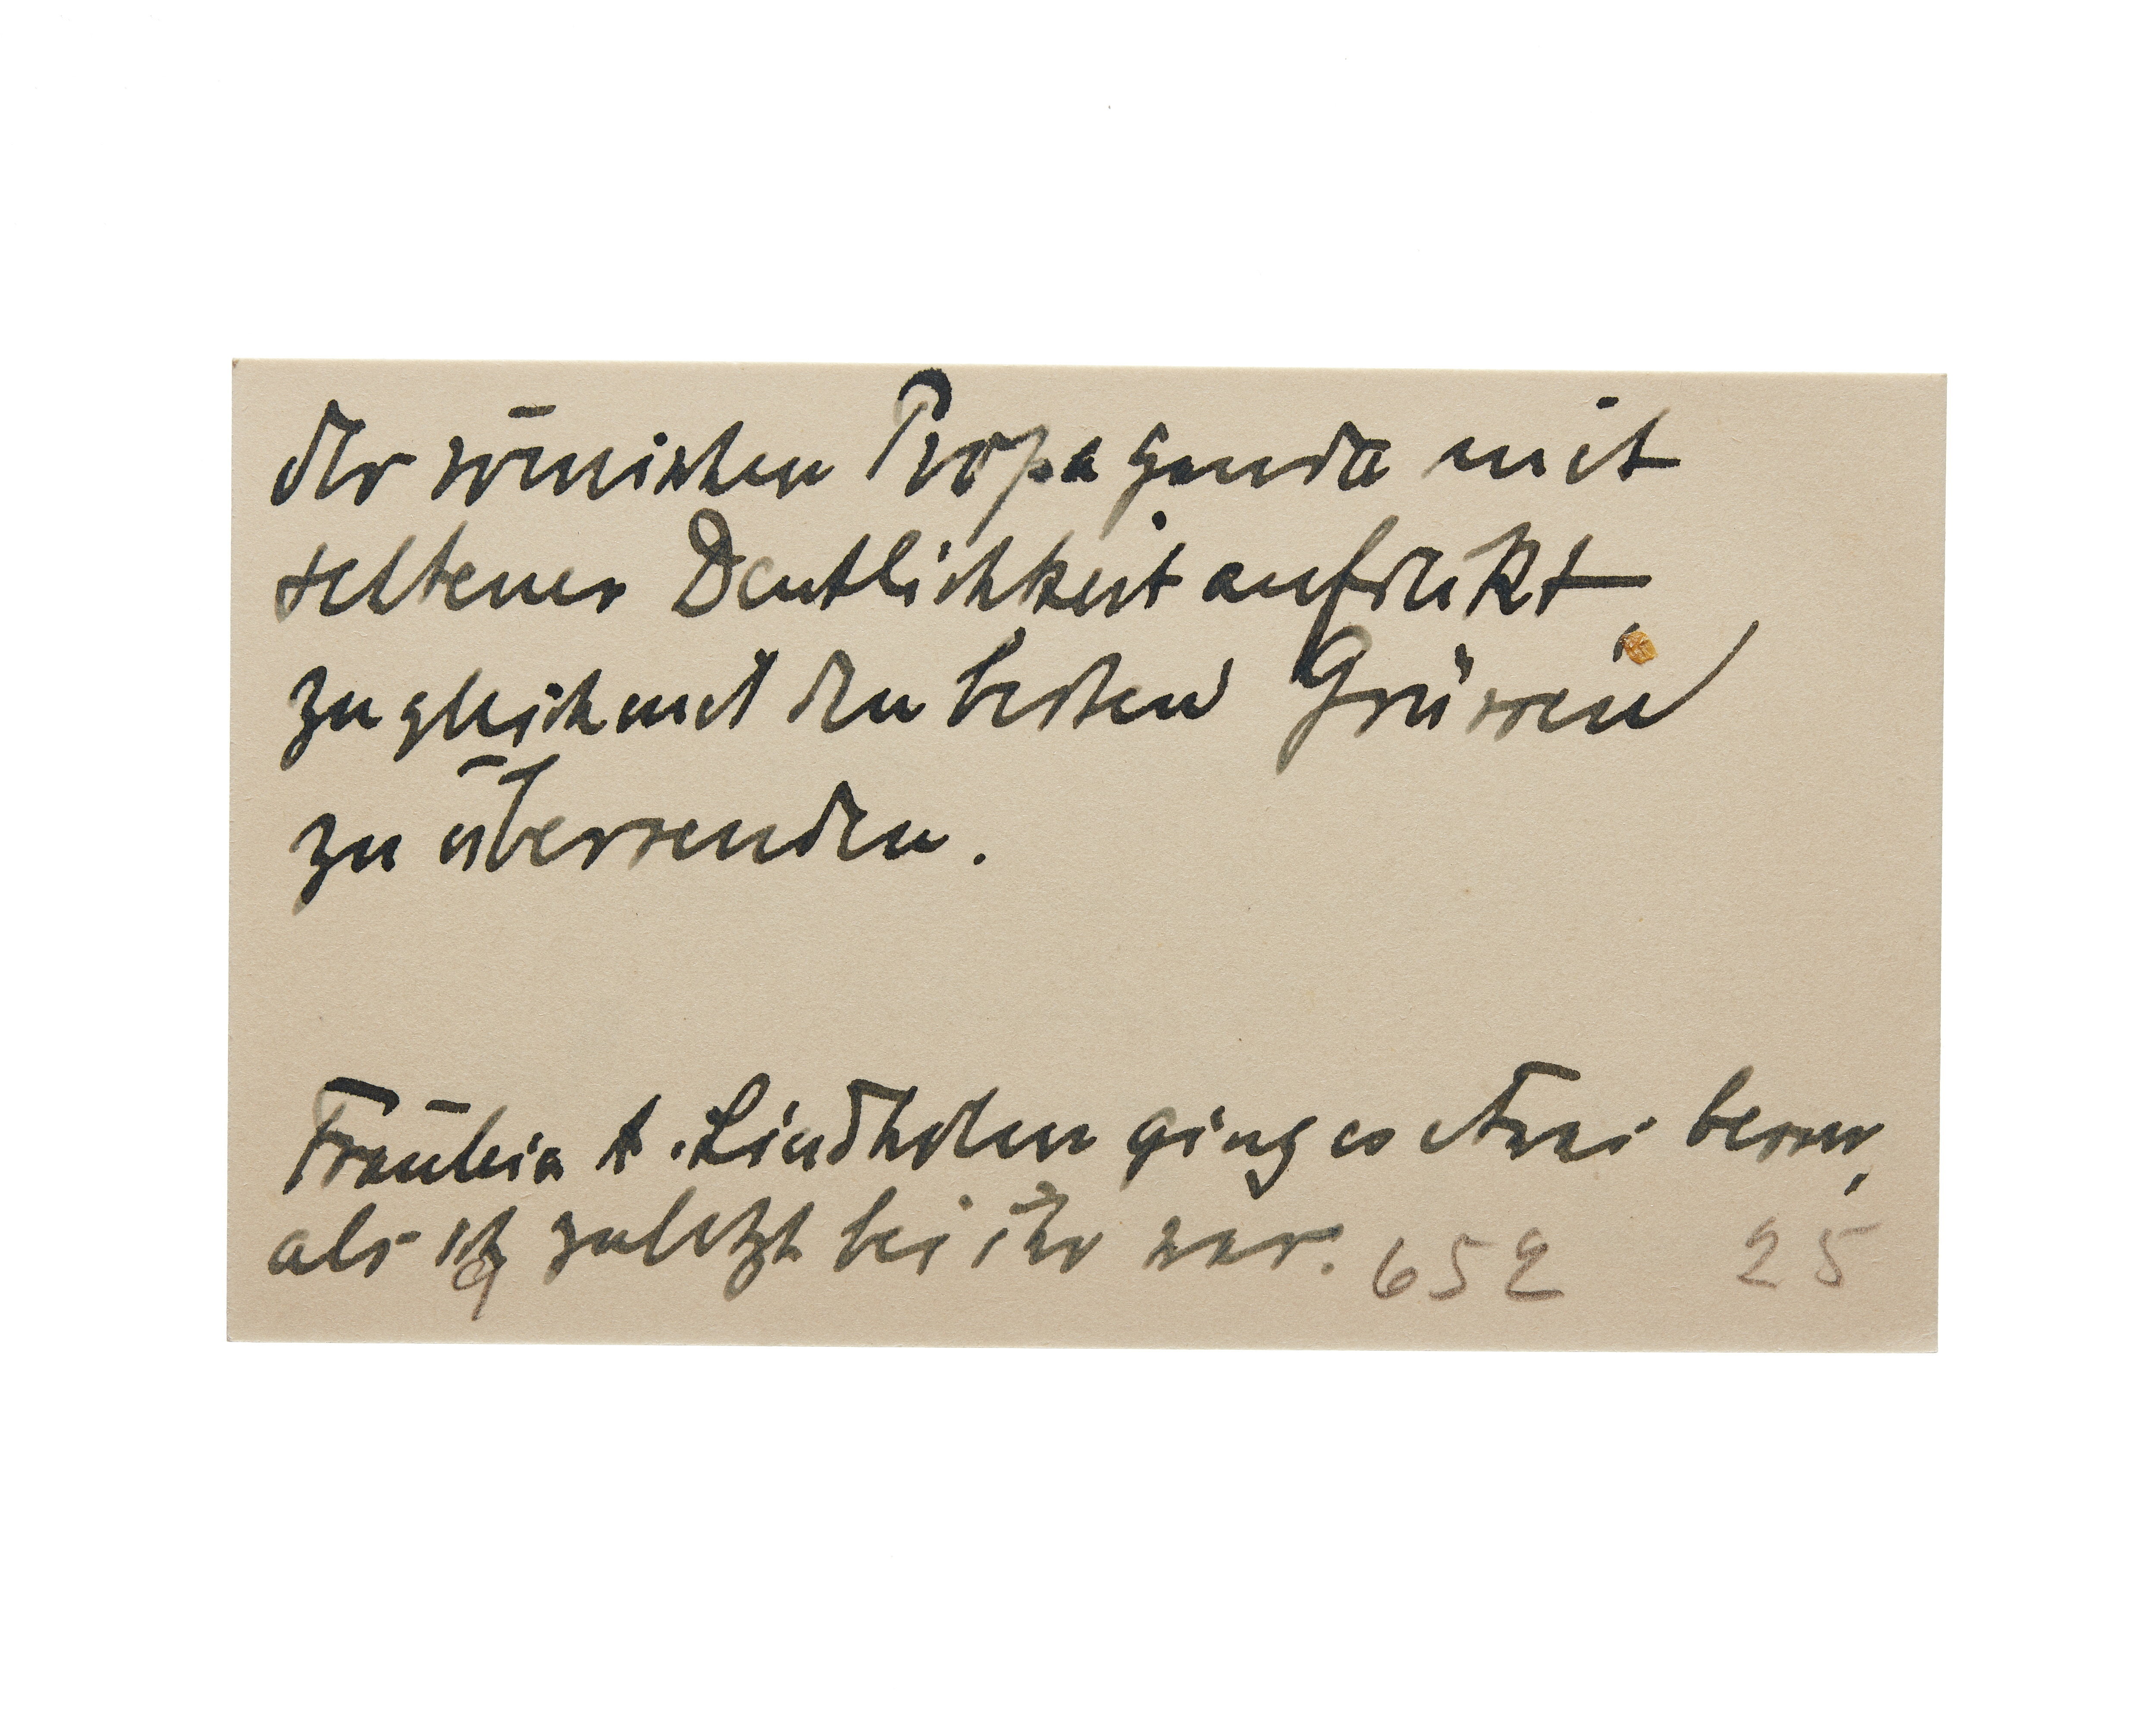 der römischen Propaganda mit
seltener Deutlichkeit aufdekt
zugleich mit den besten Grüssen
zu übersenden.
Fräulein A. Lindholm ging es etwas besser,
als ich zuletzt bei ihr war. 652 25
9